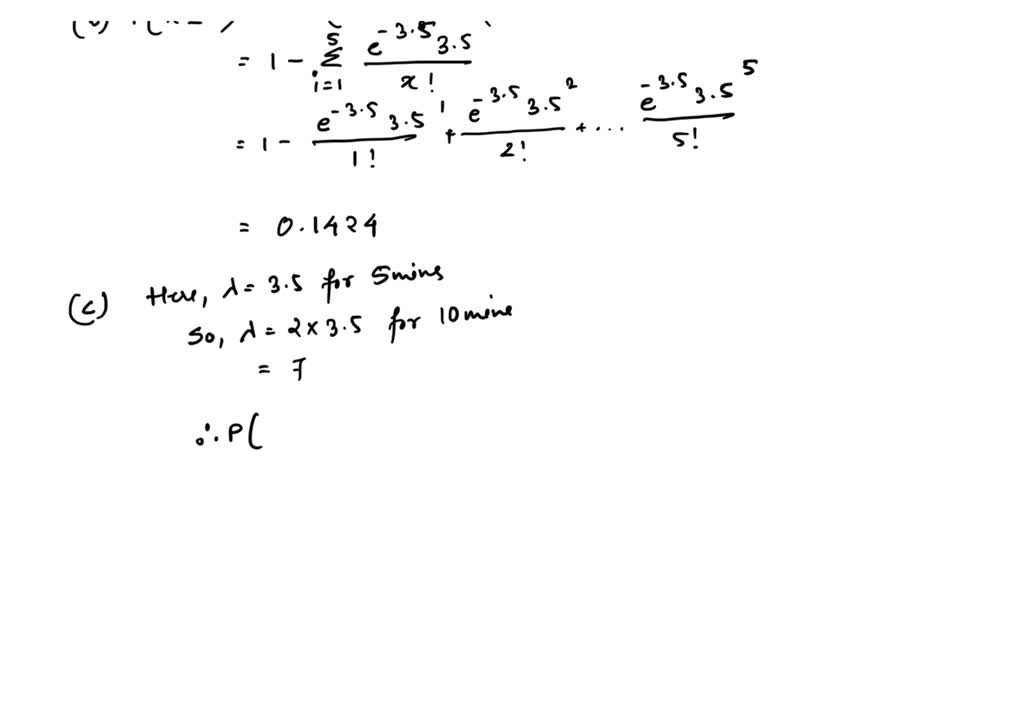 = 1 - 5 Σ i=1 e^-3.5 3.5 / x!
= 1 - e^-3.5 3.5^1 / 1! + e^-3.5 3.5^2 / 2! + ... e^-3.5 3.5^5 / 5!
= 0.1424
(c) Here, λ = 3.5 for 5mins
So, λ = 2 x 3.5 for 10mins
= 7
∴ P(